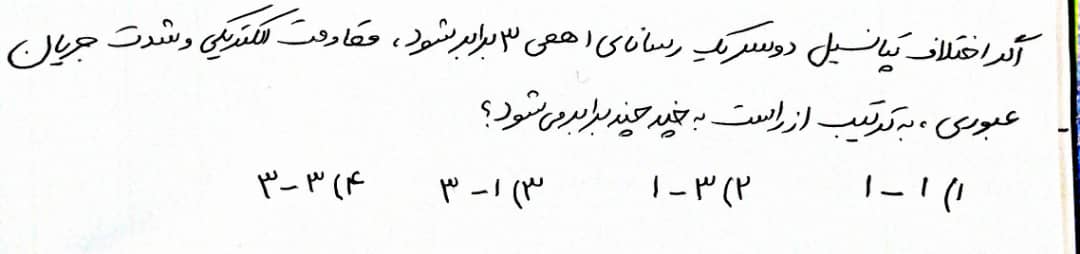 اگر اختلاف پتانسیل دوسر یک رسانای اهمی ۳ برابر شود، مقاومت الکتریکی و شدت جریان
عبوری، به ترتیب از راست به چپ چند برابر می‌شود؟
۱) ۱ – ۱ ۲) ۳ – ۱ ۳) ۱ – ۳ ۴) ۳ – ۳